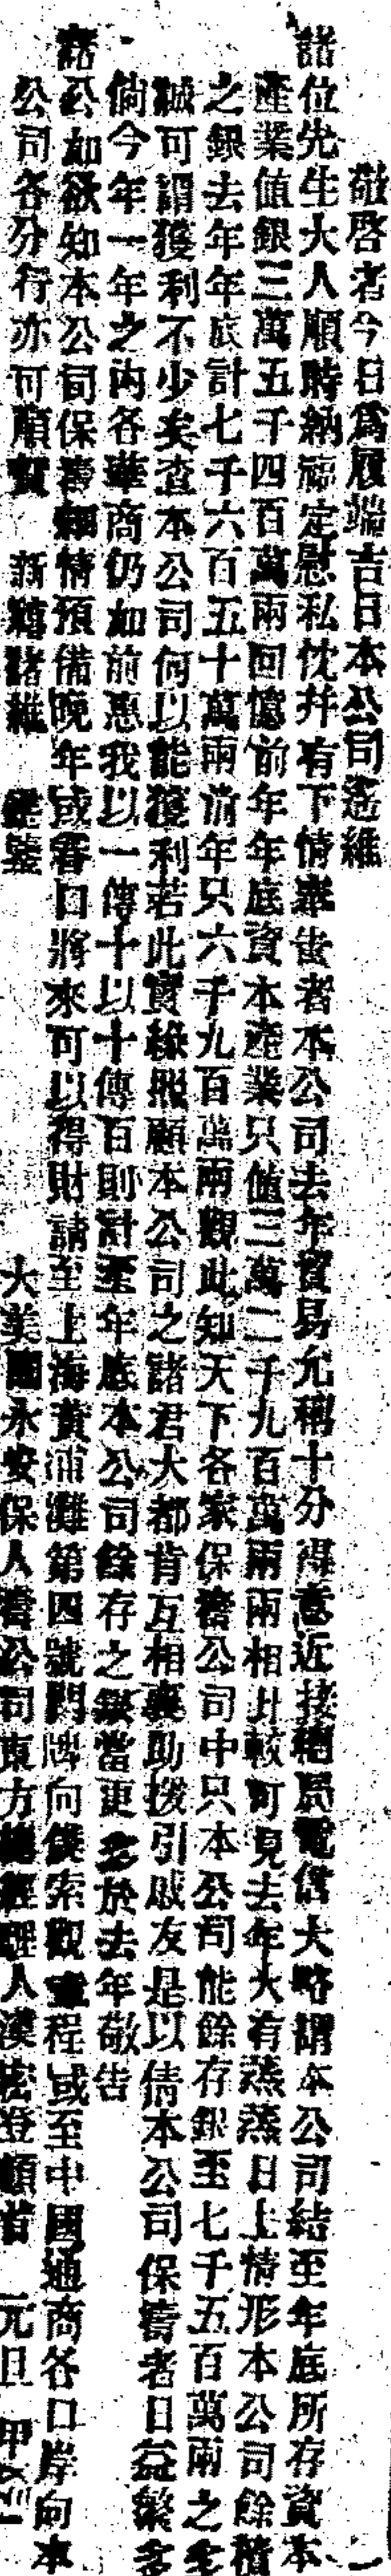 敬啓者今日爲履端吉日本公司遙維
諸位先生大人順時納福定慰私忱幷有下情奉告者本公司去年貿易允稱十分得意近接總局電信大略謂本公司結至年底所存資本
產業値銀三萬五千四百萬兩回憶前年年底資本產業只値三萬二千九百萬兩兩相比較可見去年大有蒸蒸日上情形本公司餘積
之銀去年年底計七千六百五十萬兩前年只六千九百萬兩觀此知天下各家保壽公司中只本公司能餘存銀至七千五百萬兩之多
誠可謂獲利不少矣查本公司何以能獲利若此實緣照顧本公司之諸君大都肯互相襄助援引戚友是以倩本公司保壽者日益繁多
倘今年一年之內各華商仍如前惠我以一傳十以十傳百則計至年底本公司餘存之銀當更多於去年敬告
諸公如欲知本公司保壽細情預備晚年或眷口將來可以得財請至上海黃浦灘第四號門牌向僕索觀章程或至中國通商各口岸向本
公司各分行亦可順賀 新禧諸維 鑒 大美國永安保人壽公司東方總經理人漢密登頓首 元旦 甲